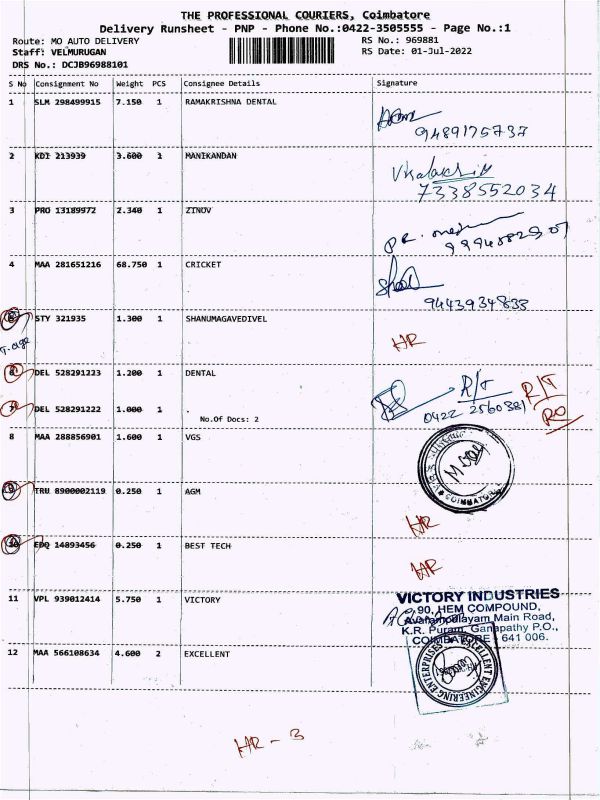 THE PROFESSIONAL COURIERS, Coimbatore
Delivery Runsheet - PNP - Phone No.:0422-3505555 - Page No.:1
Route: MO AUTO DELIVERY RS No.: 969881
Staff: VELMURUGAN RS Date: 01-Jul-2022
DRS No.: DCJB96988101
S No Consignment No Weight PCS Consignee Details Signature
1 SLM 298499915 7.150 1 RAMAKRISHNA DENTAL
9489175737
2 KDI 213939 3.600 1 MANIKANDAN
7338552034
3 PRO 13189972 2.340 1 ZINOV
4 MAA 281651216 68.750 1 CRICKET
9443934833
STY 321935 1.300 1 SHANUMAGAVEDIVEL
HR
6 DEL 528291223 1.200 1 DENTAL
R/T R/T
DEL 528291222 1.000 1 .
0422 2560381 RO
No.Of Docs: 2
8 MAA 288856901 1.600 1 VGS
COIMBATORE
9 TRU 8900002119 0.250 1 AGM
HR
10 EDQ 14893456 0.250 1 BEST TECH
HR
11 VPL 939012414 5.750 1 VICTORY
VICTORY INDUSTRIES
90, HEM COMPOUND,
Avarampalayam Main Road,
K.R. Puram, Ganapathy P.O.,
COIMBATORE - 641 006.
12 MAA 566108634 4.600 2 EXCELLENT
EXCELLENT ENGINEERING ENTERPRISES
HR - 3